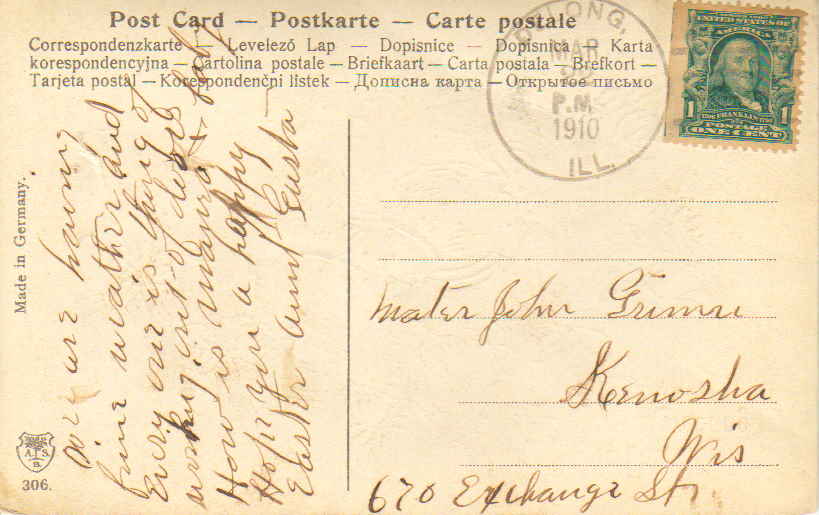 Post Card — Postkarte — Carte postale
Correspondenzkarte — Levelező Lap — Dopisnice — Dopisnica — Karta
korespondencyjna — Cartolina postale — Briefkaart — Carta postala — Brefkort —
Tarjeta postal — Korespondenční listek — Дописна карта — Открытое письмо
DELONG,
MAR
P.M.
1910
ILL.
UNITED STATES OF
AMERICA
1706 FRANKLIN 1790
POSTAGE
1 ONE CENT 1
Made in Germany.
A.S.
B.
306.
We are having
fine weather and
Every one is thing of
working out-of-doors
How is mama & baby
Hope you a happy
Easter aunt Gusta
Mater John Grimm
Kenosha
Wis
670 Exchange Str.